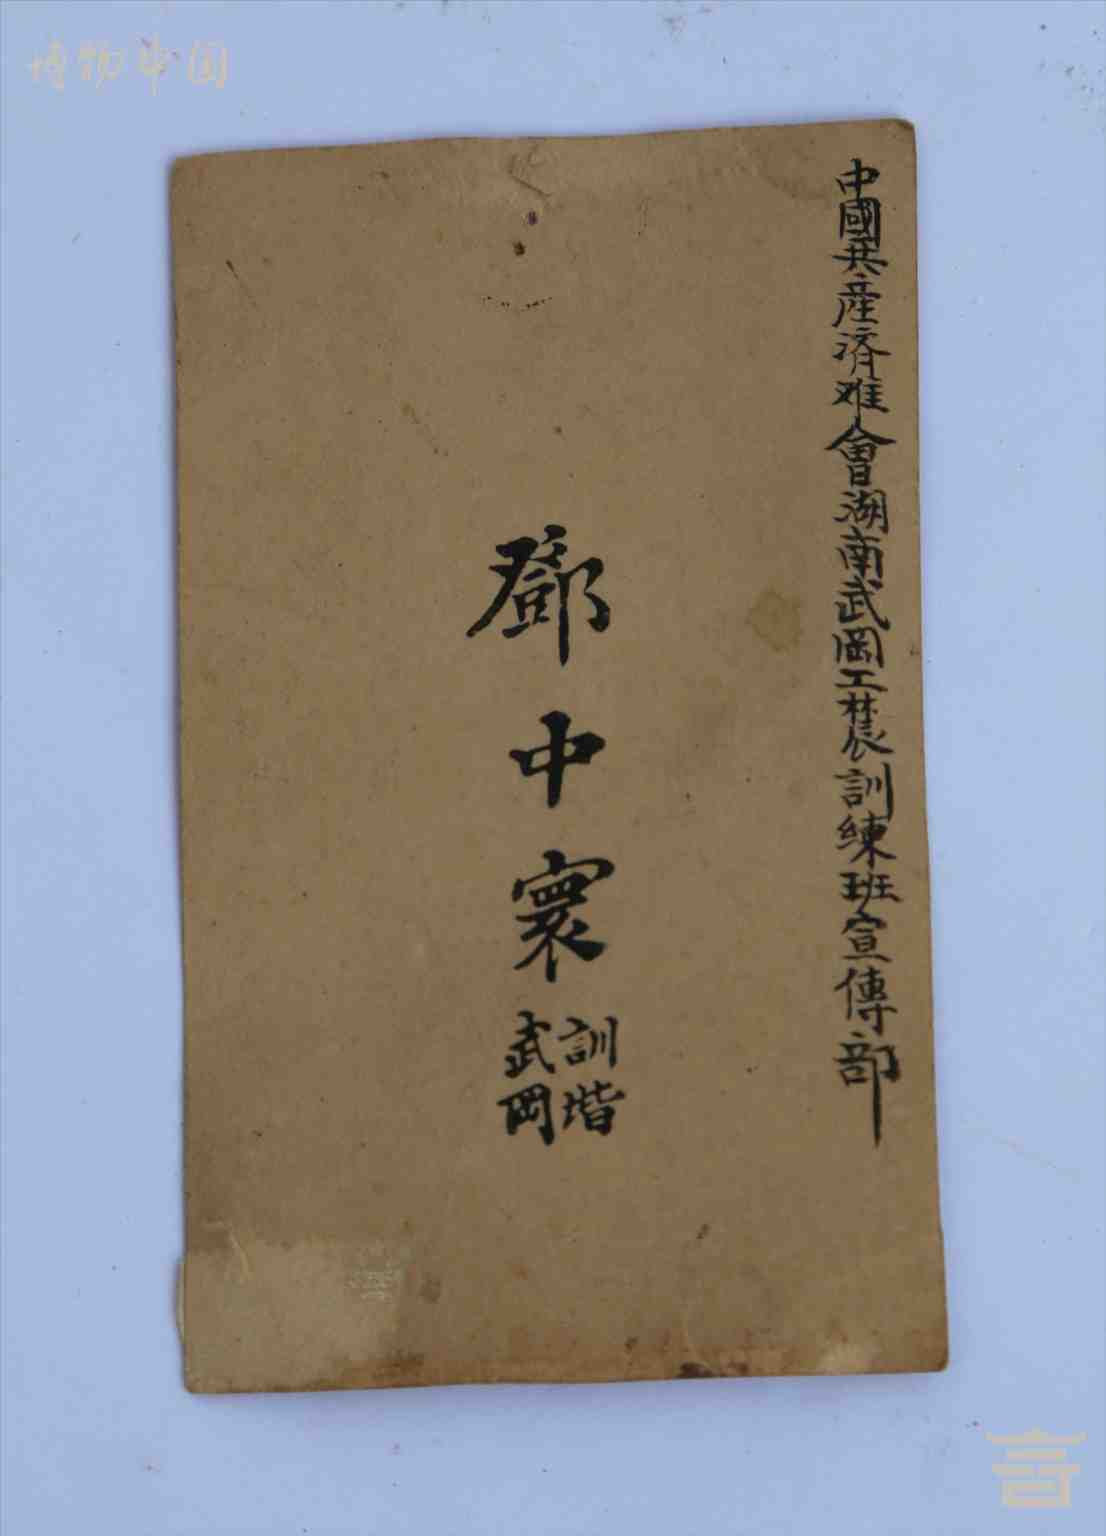 博物中国
中國共産済难會湖南武岡工農訓練班宣傳部
鄧中寰
訓堦
武岡